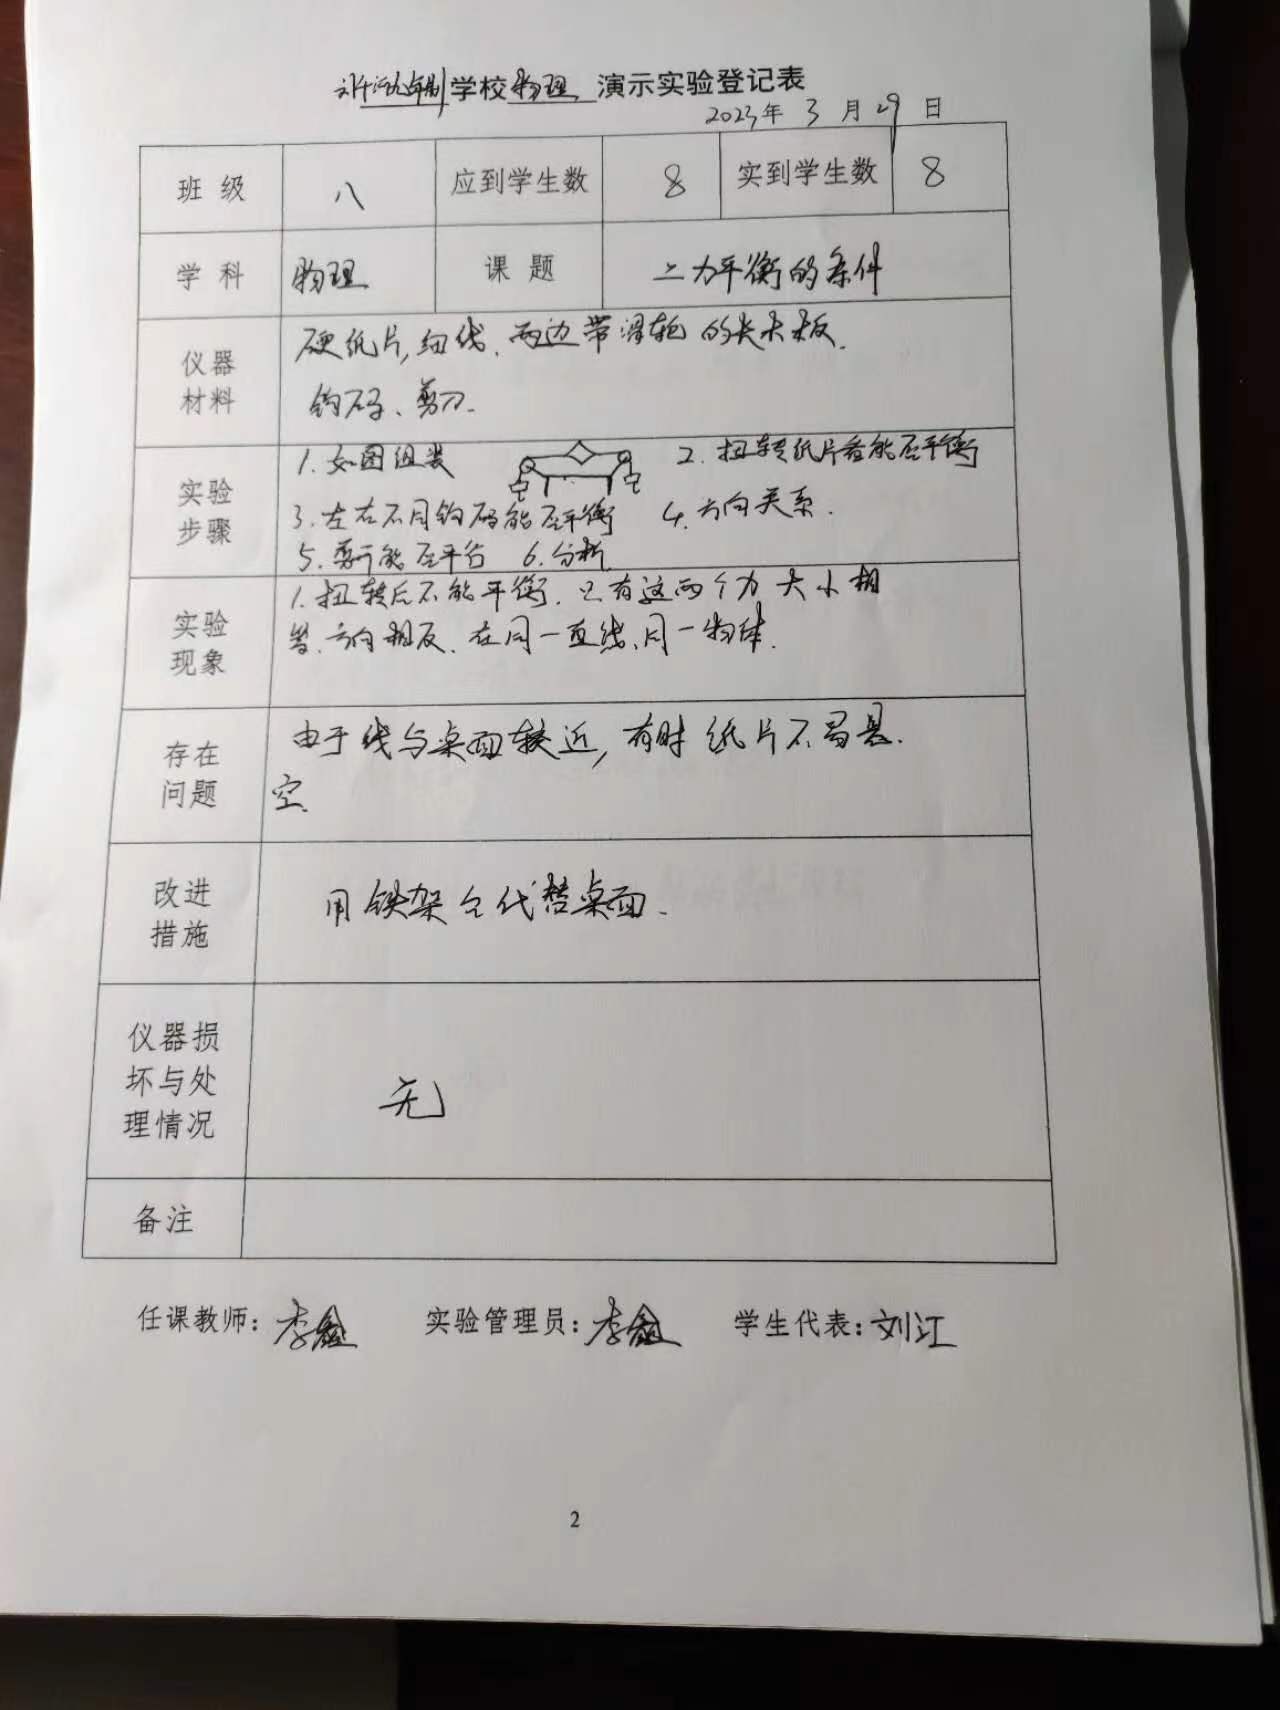 九年制学校物理 演示实验登记表
2023年 3 月 29 日
班 级 八 应到学生数 8 实到学生数 8
学 科 物理 课 题 二力平衡的条件
仪器 材料
硬纸片,细线、两边带滑轮的长木板.
钩码、剪刀.
实验 步骤
1.如图组装 2.扭转纸片看能否平衡
3.左右不同钩码能否平衡 4.方向关系.
5.剪开能否平衡 6.分析
实验 现象
1.扭转后不能平衡.只有这两个力大小相
等.方向相反.在同一直线、同一物体.
存在 问题
由于线与桌面较近,有时纸片不易悬.
空.
改进 措施
用铁架台代替桌面.
仪器损 坏与处 理情况
无
备注
任课教师:李鑫 实验管理员:李鑫 学生代表:刘江
2